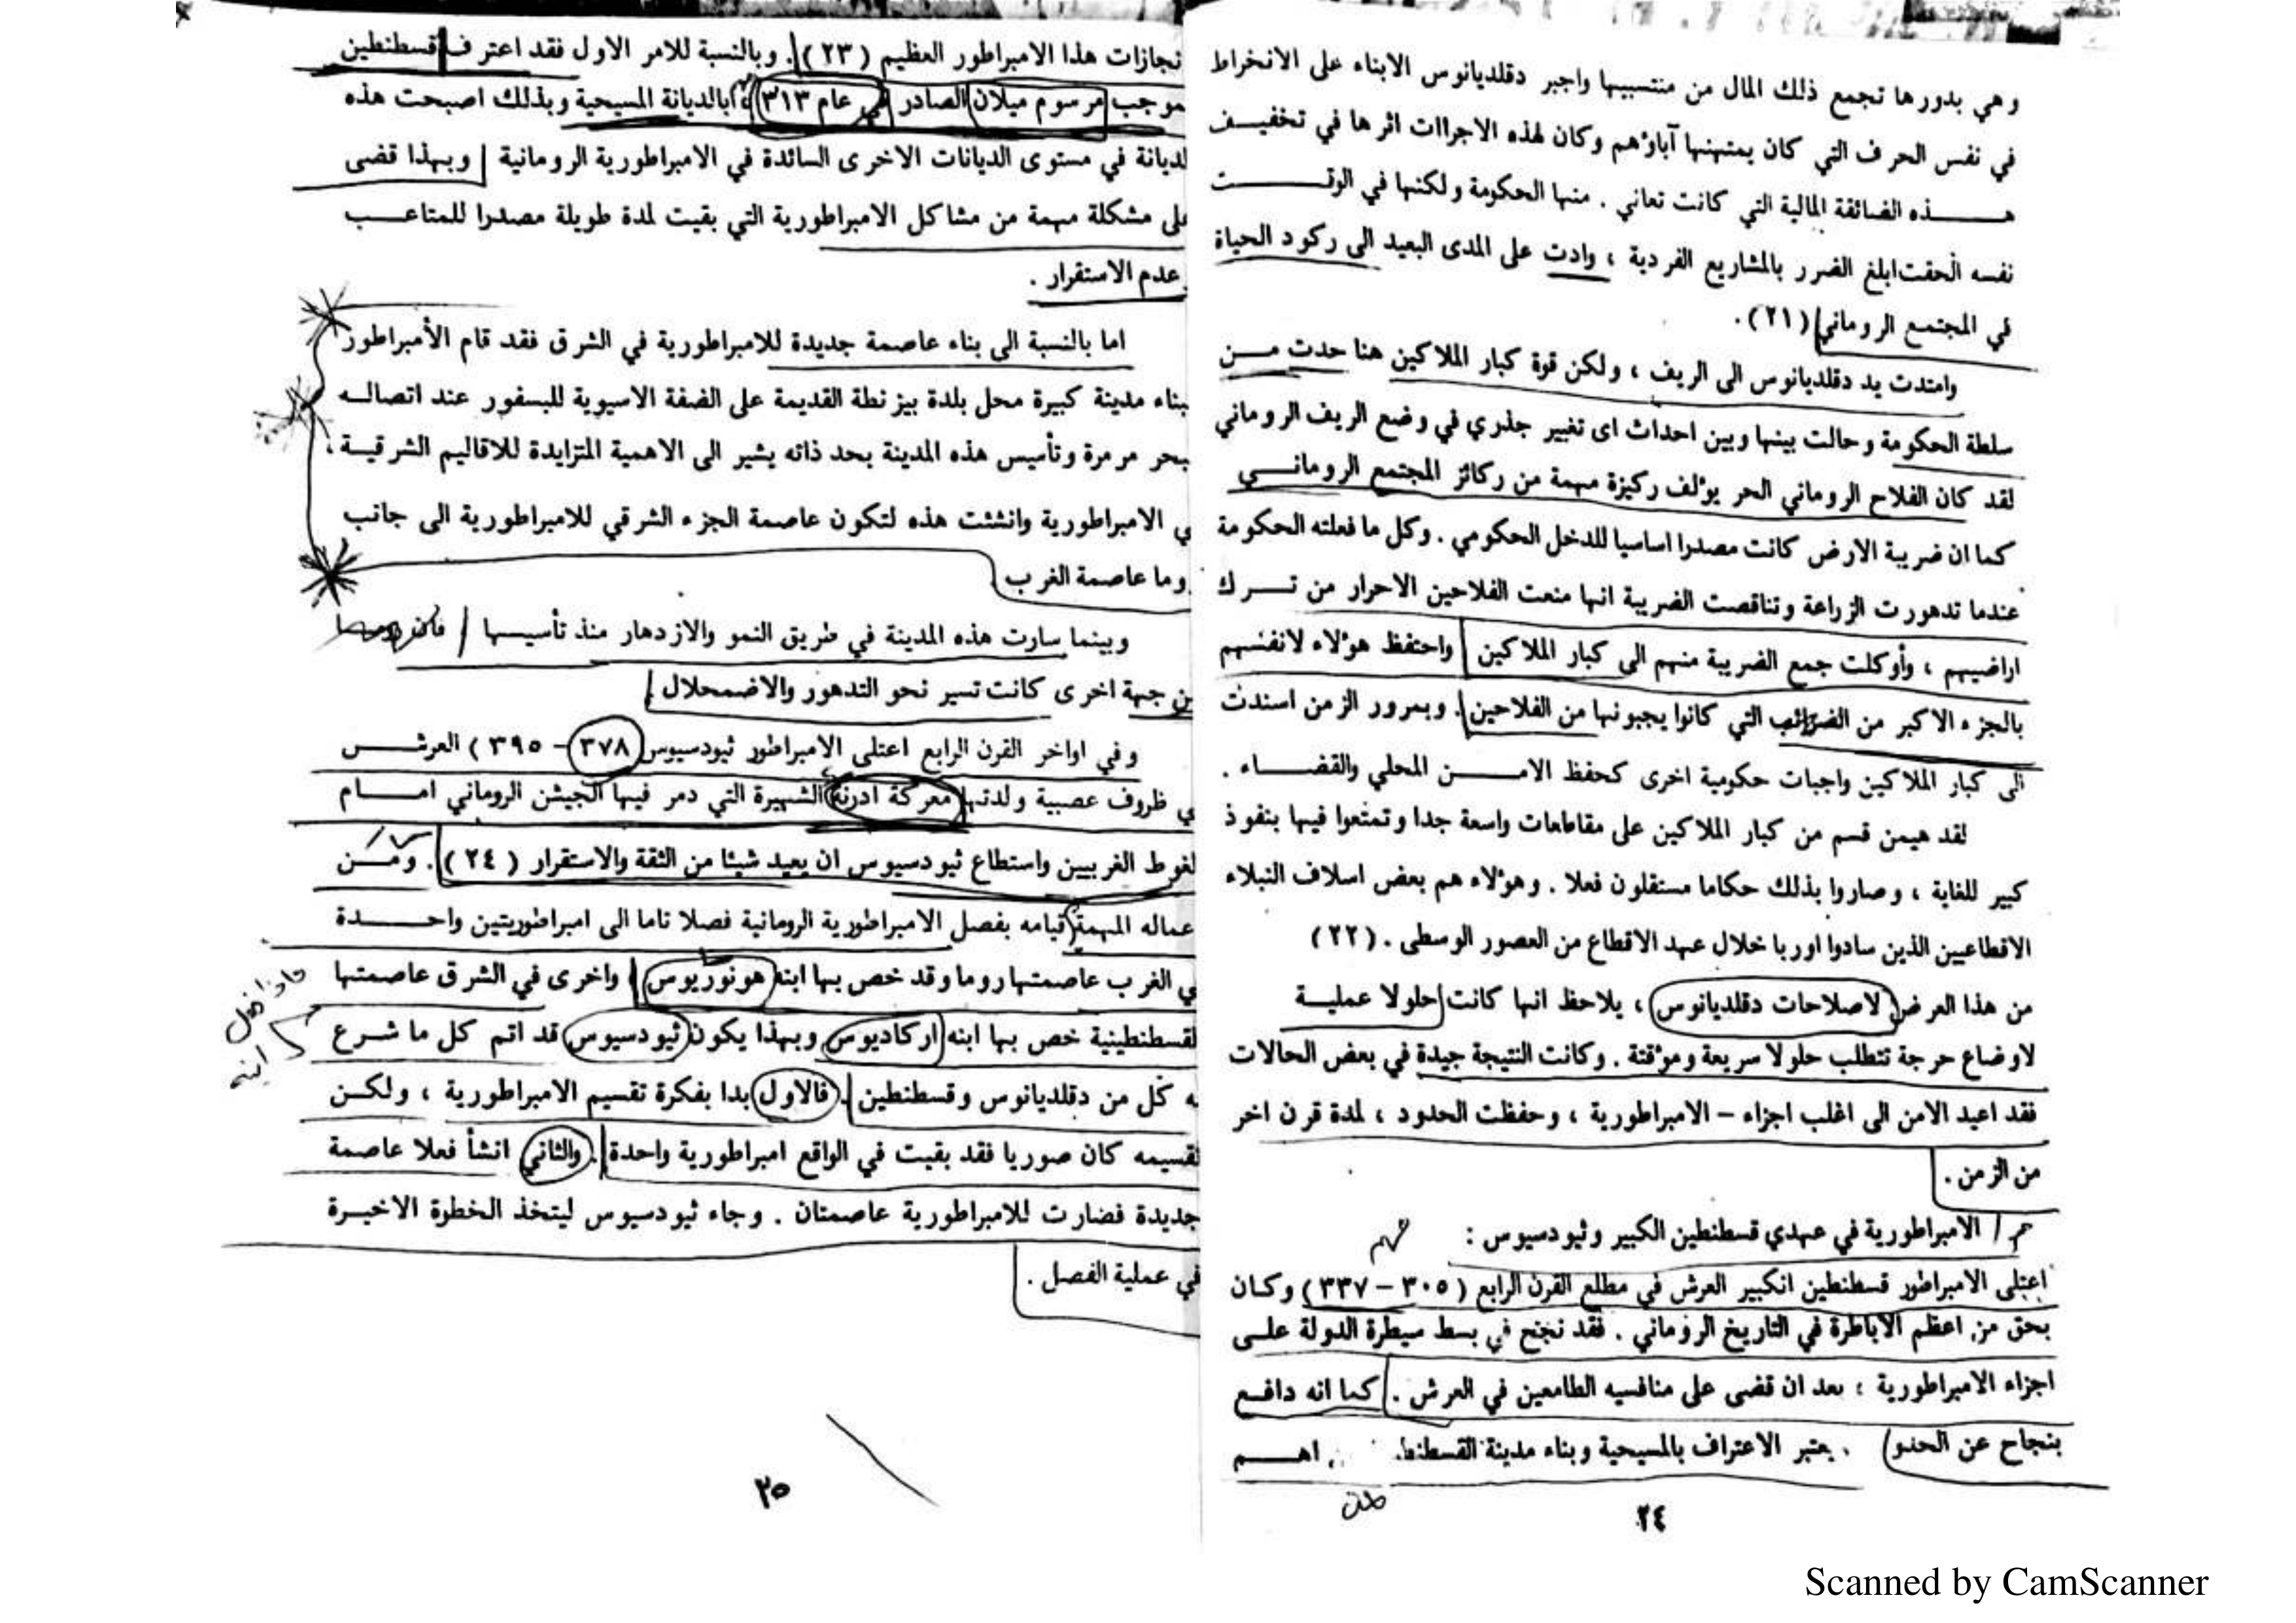 وهي بدورها تجمع ذلك المال من منتسبيها واجبر دقلديانوس الابناء على الانخراط
في نفس الحرف التي كان يمتهنها آباؤهم وكان لهذه الاجراات اثرها في تخفيف
هذه الضائقة المالية التي كانت تعاني . منها الحكومة ولكنها في الوقت
نفسه الحقت ابلغ الضرر بالمشاريع الفردية ، وادت على المدى البعيد الى ركود الحياة
في المجتمع الروماني (٢١).
وامتدت يد دقلديانوس الى الريف ، ولكن قوة كبار الملاكين هنا حدت من
سلطة الحكومة وحالت بينها وبين احداث اى تغيير جذري في وضع الريف الروماني
لقد كان الفلاح الروماني الحر يؤلف ركيزة مهمة من ركائز المجتمع الروماني
كما ان ضريبة الارض كانت مصدرا اساسيا للدخل الحكومي . وكل ما فعلته الحكومة
عندما تدهورت الزراعة وتناقصت الضريبة انها منعت الفلاحين الاحرار من ترك
اراضيهم ، وأوكلت جمع الضريبة منهم الى كبار الملاكين واحتفظ هؤلاء لانفسهم
بالجزء الاكبر من الضرائب التي كانوا يجبونها من الفلاحين . وبمرور الزمن اسندت
الى كبار الملاكين واجبات حكومية اخرى كحفظ الامن المحلي والقضاء .
لقد هيمن قسم من كبار الملاكين على مقاطعات واسعة جدا وتمتعوا فيها بنفوذ
كبير للغاية ، وصاروا بذلك حكاما مستقلون فعلا . وهؤلاء هم بعض اسلاف النبلاء
الاقطاعيين الذين سادوا اوربا خلال عهد الاقطاع من العصور الوسطى . (٢٢)
من هذا العرض لاصلاحات دقلديانوس ، يلاحظ انها كانت حلولا عملية
لاوضاع حرجة تتطلب حلولا سريعة ومؤقتة . وكانت النتيجة جيدة في بعض الحالات
فقد اعيد الامن الى اغلب اجزاء – الامبراطورية ، وحفظت الحدود ، لمدة قرن اخر
من الزمن .
الامبراطورية في عهدي قسطنطين الكبير وثيودسيوس :
مهم
اعتلى الامبراطور قسطنطين الكبير العرش في مطلع القرن الرابع ( ٣٠٥ – ٣٣٧ ) وكان
بحق من اعظم الاباطرة في التاريخ الروماني . فقد نجح في بسط سيطرة الدولة على
اجزاء الامبراطورية ؛ بعد ان قضى على منافسيه الطامعين في العرش . كما انه دافع
بنجاح عن الحدو . يعتبر الاعتراف بالمسيحية وبناء مدينة القسطنط اهم
٢٤
نجازات هذا الامبراطور العظيم (٢٣) . وبالنسبة للامر الاول فقد اعترف قسطنطين
موجب مرسوم ميلان الصادر في عام ٣١٣ م بالديانة المسيحية وبذلك اصبحت هذه
لديانة في مستوى الديانات الاخرى السائدة في الامبراطورية الرومانية وبهذا قضى
على مشكلة مهمة من مشاكل الامبراطورية التي بقيت لمدة طويلة مصدرا للمتاعب
عدم الاستقرار .
اما بالنسبة الى بناء عاصمة جديدة للامبراطورية في الشرق فقد قام الأمبراطور
ببناء مدينة كبيرة محل بلدة بيزنطة القديمة على الضفة الاسيوية للبسفور عند اتصاله
ببحر مرمرة وتأسيس هذه المدينة بحد ذاته يشير الى الاهمية المتزايدة للاقاليم الشرقية ،
ي الامبراطورية وانشئت هذه لتكون عاصمة الجزء الشرقي للامبراطورية الى جانب
روما عاصمة الغرب
وبينما سارت هذه المدينة في طريق النمو والازدهار منذ تأسيسها فان روما
من جهة اخرى كانت تسير نحو التدهور والاضمحلال .
وفي اواخر القرن الرابع اعتلى الامبراطور ثيودسيوس ( ٣٧٨ – ٣٩٥ ) العرش
ي ظروف عصبية ولدتها معركة ادرنة الشهيرة التي دمر فيها الجيش الروماني امام
لغوط الغربيين واستطاع ثيودسيوس ان يعيد شيئا من الثقة والاستقرار ( ٢٤ ) . ومن
عماله المهمة قيامه بفصل الامبراطورية الرومانية فصلا تاما الى امبراطوريتين واحدة
ي الغرب عاصمتها روما وقد خص بها ابنه هونوريوس واخرى في الشرق عاصمتها
لقسطنطينية خص بها ابنه اركاديوس وبهذا يكون ثيودسيوس قد اتم كل ما شرع
به كل من دقلديانوس وقسطنطين . فالاول بدا بفكرة تقسيم الامبراطورية ، ولكن
تقسيمه كان صوريا فقد بقيت في الواقع امبراطورية واحدة . والثاني انشأ فعلا عاصمة
جديدة فضارت للامبراطورية عاصمتان . وجاء ثيودسيوس ليتخذ الخطوة الاخيرة
في عملية الفصل .
٢٥
Scanned by CamScanner